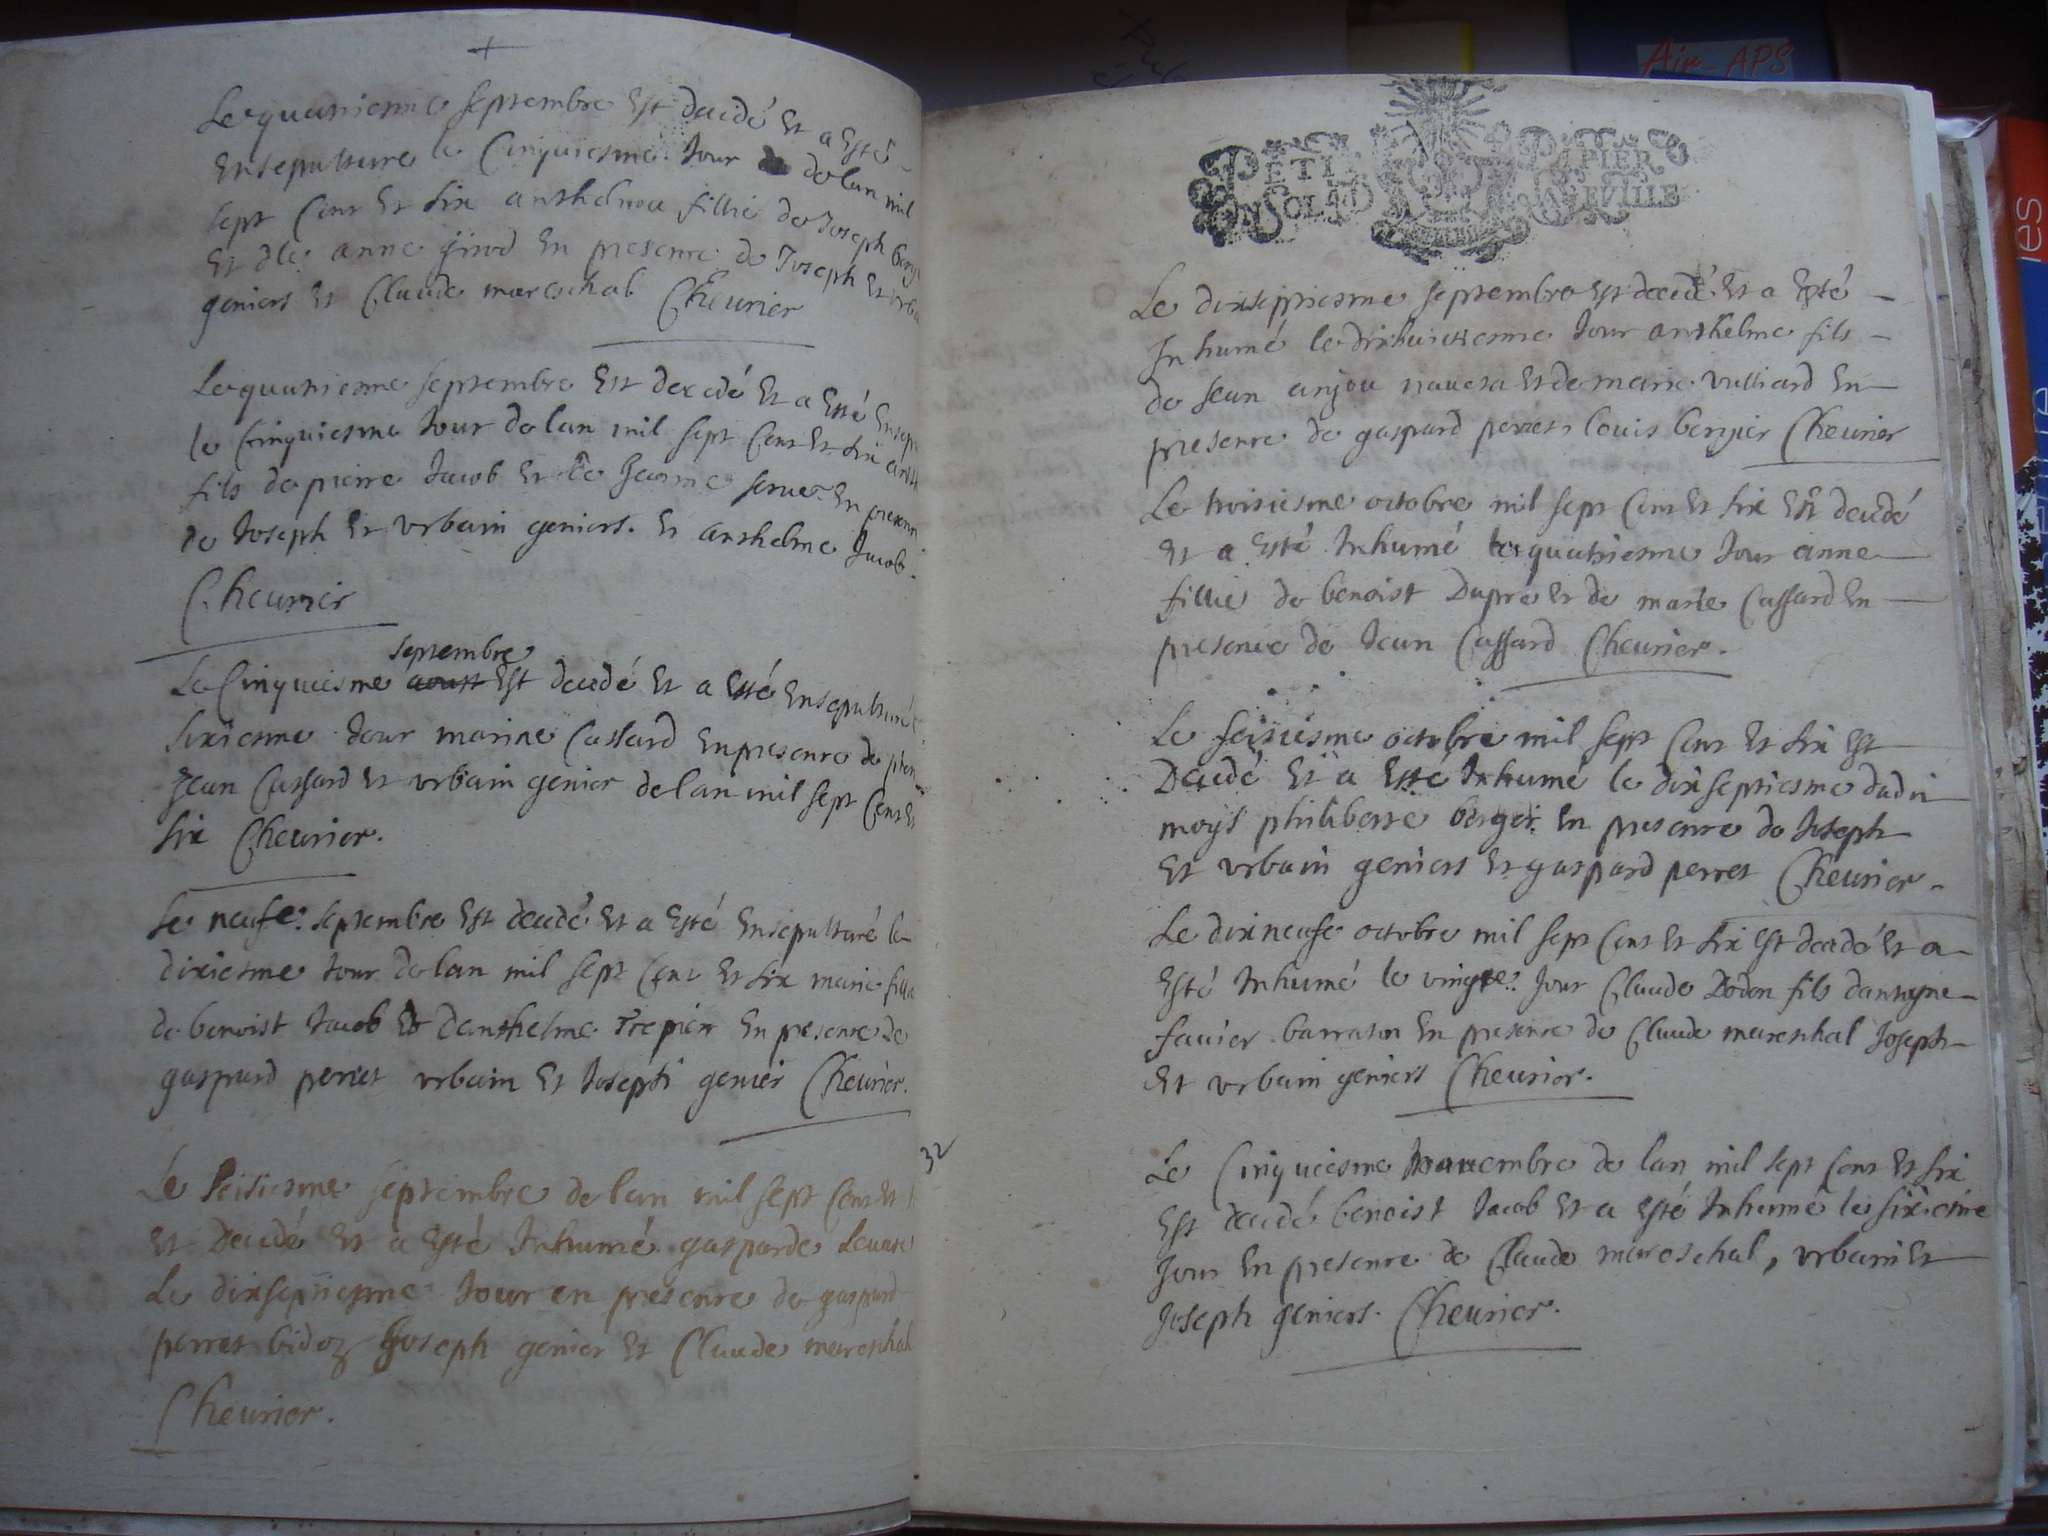 Le quatriesme septembre Est decedé Et a Esté
Ensepulturé le Cinquiesme Jour de lan mil
sept Cent Et six anthelmea fillie de Joseph
Et dle anne girod En presence de Joseph Et
geniers Et Claude mareschal Cheurier
Le quatriesme septembre Est decedé Et a Esté
le Cinquiesme Jour de lan mil sept Cent Et six
fils de pierre Jacob Et de Jeanne En presence
de Joseph Et vrbain geniers. Et anthelme Jacob.
Cheurier
septembre
Le Cinquiesme aoust Est decedé Et a Esté Ensepulturé
sixiesme Jour marine Cassard En presence de
Jean Cassard Et vrbain genier de lan mil sept Cent Et
six Cheurier.
Le neufe. septembre Est decedé Et a Esté Ensepulturé le
dixiesme Jour de lan mil sept Cent Et six marie fillie
de benoist Jacob Et danthelme Trepier En presence de
gaspard perret vrbain Et Joseph genier Cheurier.
Le seisiesme septembre de lan mil sept Cent Et
Et Decedé Et a Esté Inhumé gasparde
Le dixseptiesme Jour en presence de gaspard
perret bidoz Joseph genier Et Claude mareschal
Cheurier.
32
Air APS
PETIT PAPIER
Le dixseptiesme septembre Est decedé Et a Esté
Inhumé le dixhuictiesme Jour anthelme fils
de Jean anjou nauera Et de marie vulliard En
presence de gaspard perret louis bergier Cheurier
Le troisiesme octobre mil sept Cent Et six Est decedé
Et a Esté Inhumé le quatriesme Jour anne
fillie de benoist Dupré Et de marie Cassard En
presence de Jean Cassard Cheurier.
Le seisiesme octobre mil sept Cent Et six Est
Decedé Et a Esté Inhumé le dixseptiesme dudit
moys philiberte berger En presence de Joseph
Et vrbain geniers Et gaspard perret Cheurier.
Le dixneufe octobre mil sept Cent Et six Est decedé Et a
Esté Inhumé le vingte. Jour Claude Dodon fils dantoyne
fauier barraton En presence de Claude mareschal Joseph
Et vrbain geniers Cheurier.
Le Cinquiesme nouembre de lan mil sept Cent Et six
Est decedé benoist Jacob Et a Esté Inhumé le sixiesme
Jour En presence de Claude mareschal, vrbain Et
Joseph geniers. Cheurier.